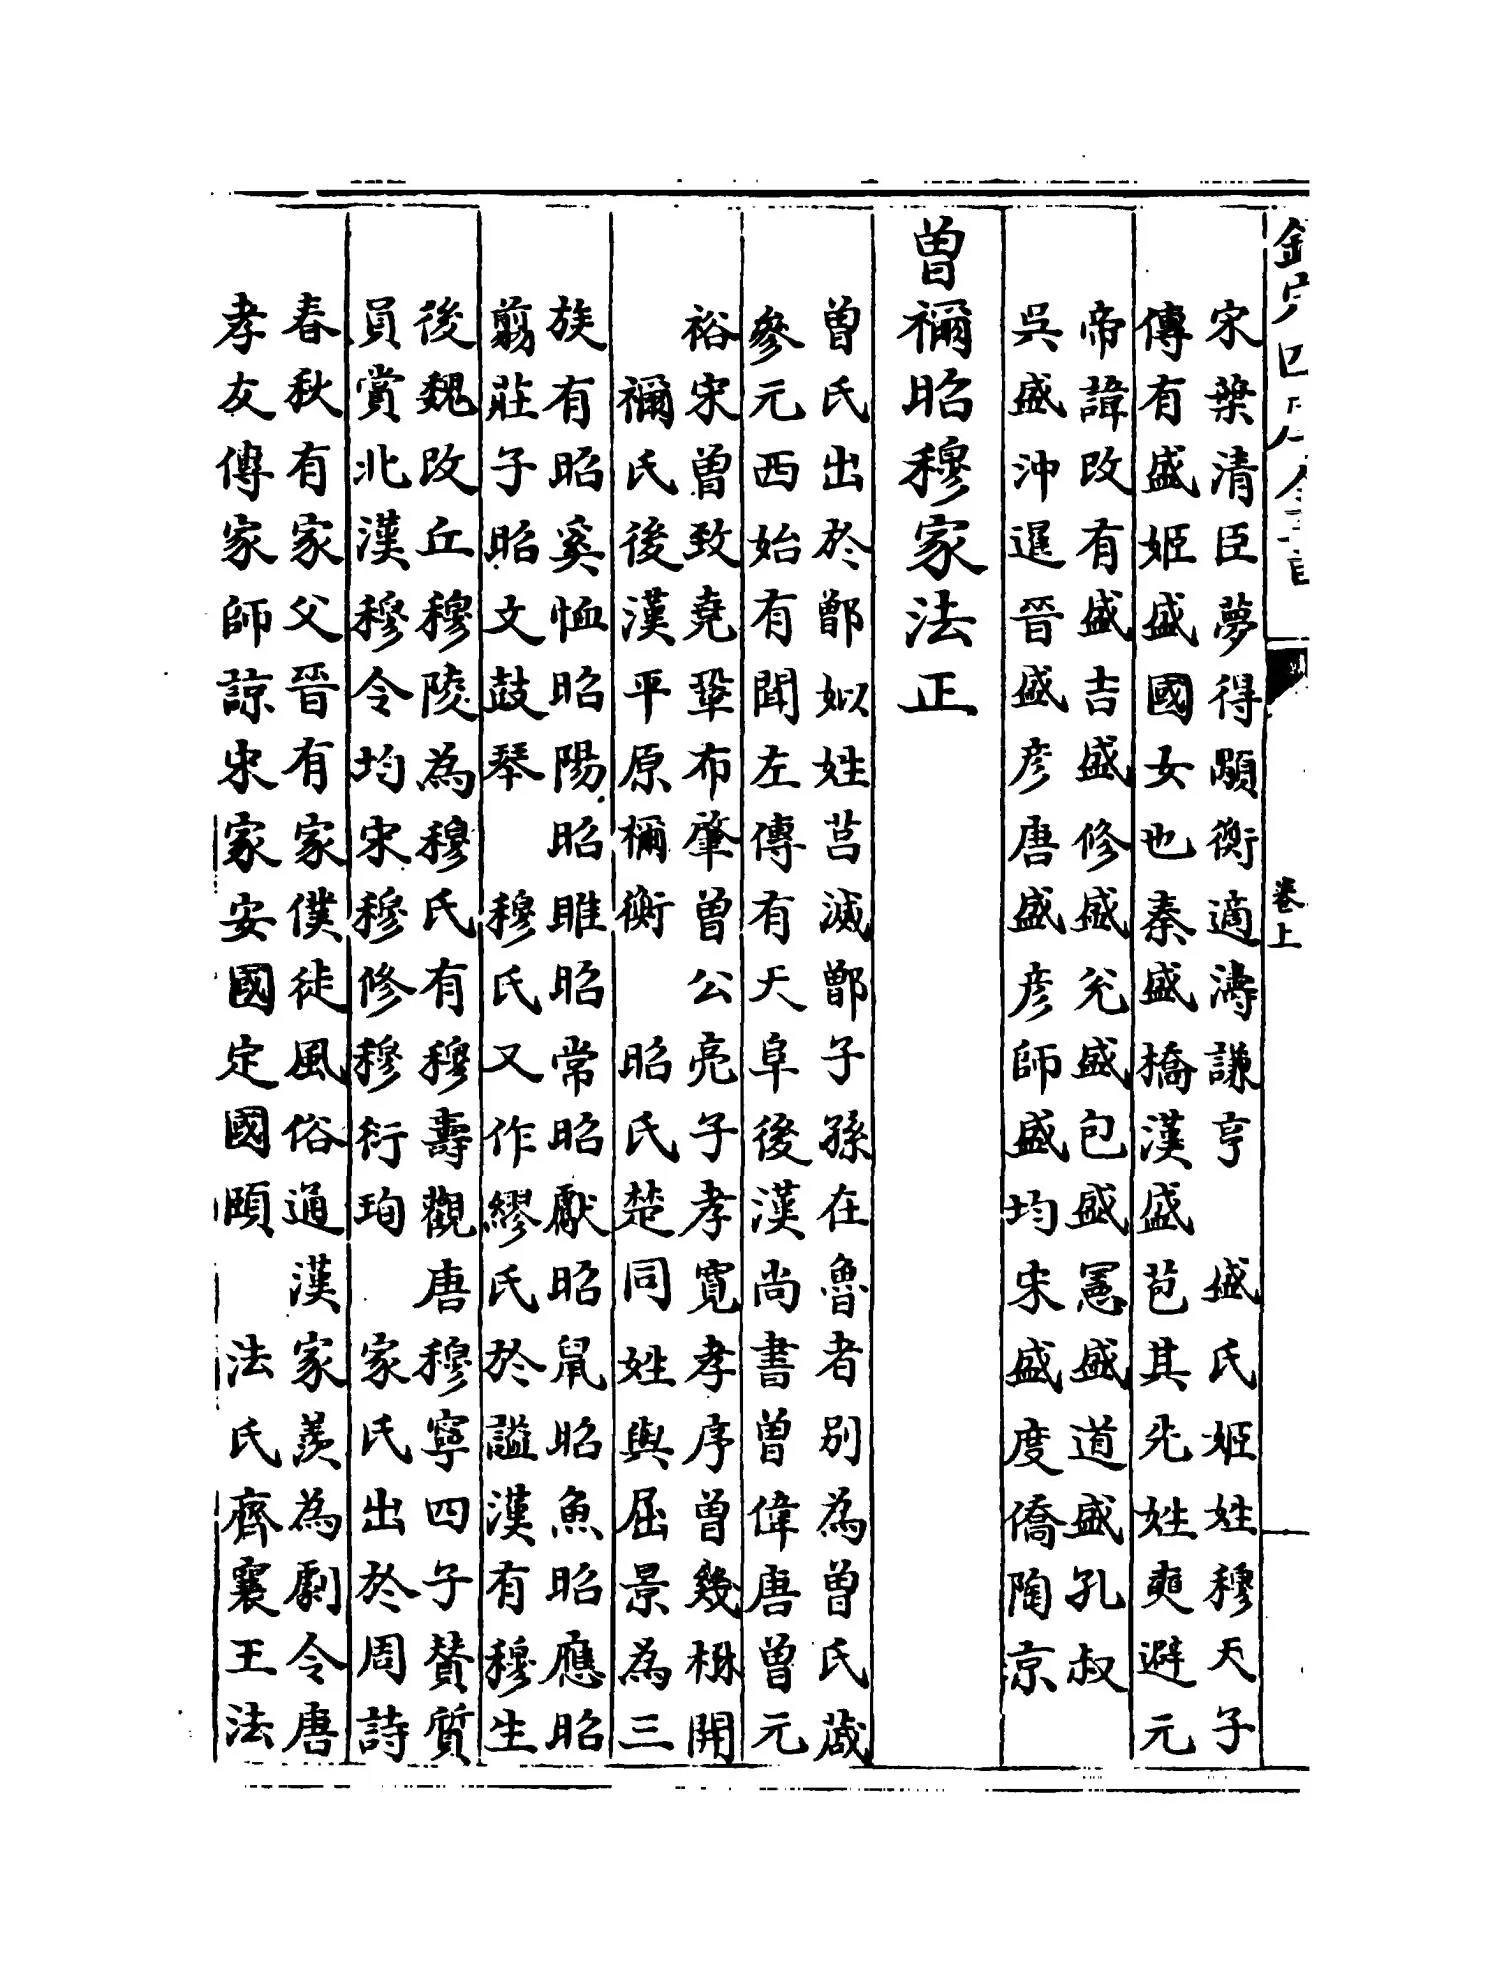 欽定四庫全書
卷上
宋葉清臣夢得顒衡適濤謙亨　盛氏姬姓穆天子
傳有盛姬盛國女也秦盛橋漢盛苞其先姓奭避元
帝諱改有盛吉盛修盛兖盛包盛憲盛道盛孔叔
吳盛沖暹晉盛彦唐盛彦師盛均宋盛度僑陶京
曽禰昭穆家法正
曽氏出於鄫姒姓莒滅鄫子孫在魯者别為曽氏蒧
參元西始有聞左傳有夭阜後漢尚書曽偉唐曽元
裕宋曽致堯鞏布肇曽公亮子孝寛孝序曽幾槲開
禰氏後漢平原禰衡　昭氏楚同姓與屈景為三
族有昭奚恤昭陽昭睢昭常昭獻昭鼠昭魚昭應昭
翦莊子昭文鼓琴　穆氏又作繆氏於謚漢有穆生
後魏改丘穆陵為穆氏有穆壽觀唐穆寧四子賛質
員賞北漢穆令均宋穆修穆衍珣　家氏出於周詩
春秋有家父晉有家僕徒風俗通漢家羨為劇令唐
孝友傳家師諒宋家安國定國頤　法氏齊襄王法